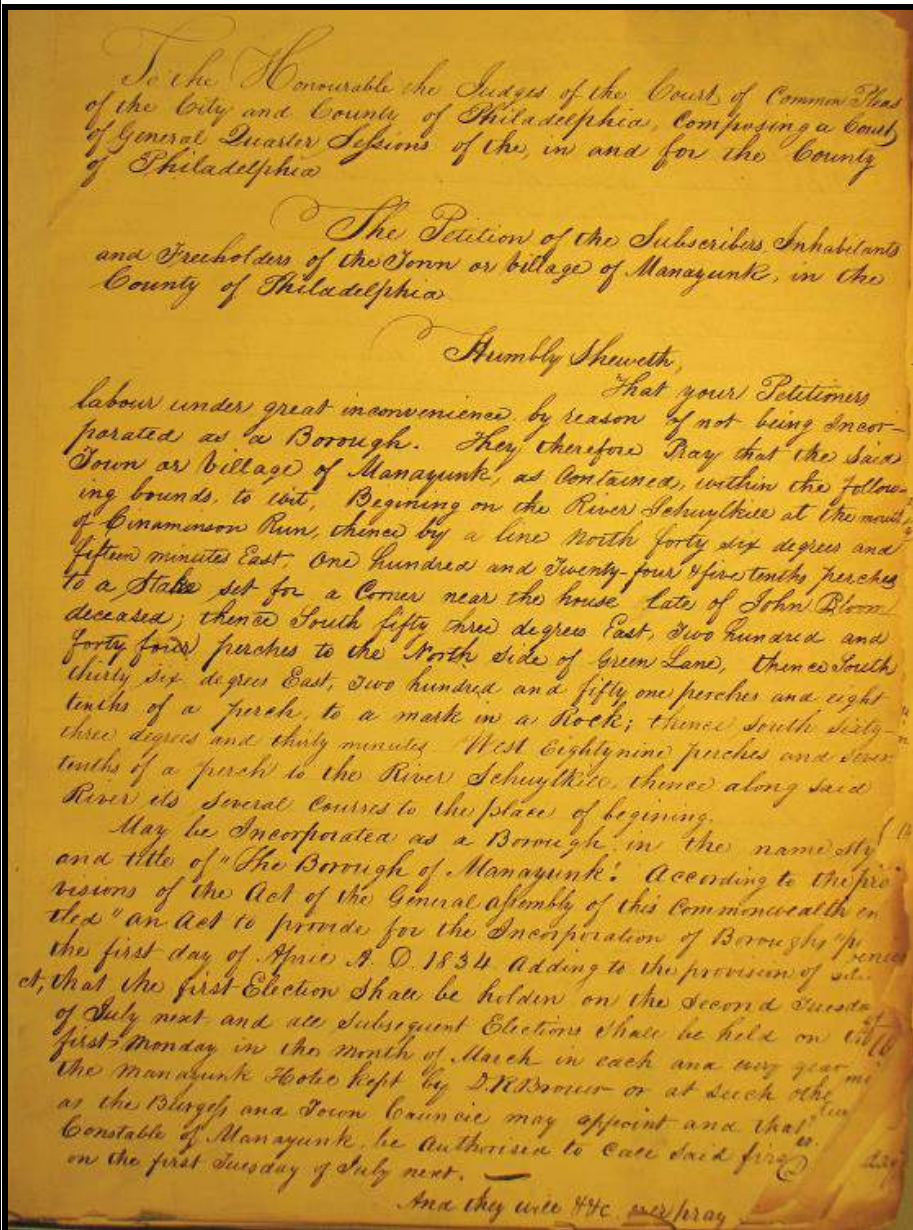 To the Honourable the Judges of the Court, of Common Pleas
of the City and County of Philadelphia, Composing a Court
of General Quarter Sessions of the, in and for the County
of Philadelphia
The Petition of the Subscribers, Inhabitants
and Freeholders of the Town or Village of Manayunk, in the
County of Philadelphia
Humbly Sheweth,
That your Petitioners
labour under great inconvenience, by reason of not being Incor-
porated as a Borough. They therefore Pray that the said
Town or Village of Manayunk, as Contained, within the follow-
ing bounds, to wit, Begining on the River Schuylkill at the mouth
of Cinamonson Run, thence by a line North forty six degrees and
fifteen minutes East, One hundred and Twenty-four & five tenths perches
to a Stake set for a Corner near the house late of John Bloom
deceased; thence South fifty three degrees East, Two hundred and
forty four perches to the North side of Green Lane, thence South
thirty six degrees East, Two hundred and fifty one perches and eight
tenths of a perch, to a mark in a Rock; thence South Sixty-
three degrees and thirty minutes West Eighty nine perches and seven
tenths of a perch to the River Schuylkill, thence along said
River its several Courses to the place of begining.
May be Incorporated as a Borough in the name
and title of "The Borough of Manayunk". According to the pro
visions of the Act of the General assembly of this Commonwealth en
tled "an Act to provide for the Incorporation of Boroughs"
the first day of April A. D. 1834. Adding to the provision of
ct, that the first Election Shall be holden on the Second Tuesda
of July next and all Subsequent Elections Shall be held on
first Monday in the Month of March in each and every year
the Manayunk Hotel kept by D. R. Brower or at such othe
as the Burgess and Town Council may appoint and that
Constable of Manayunk, be Authorised to call said firs
on the first Tuesday of July next.
And they will &&c ever pray